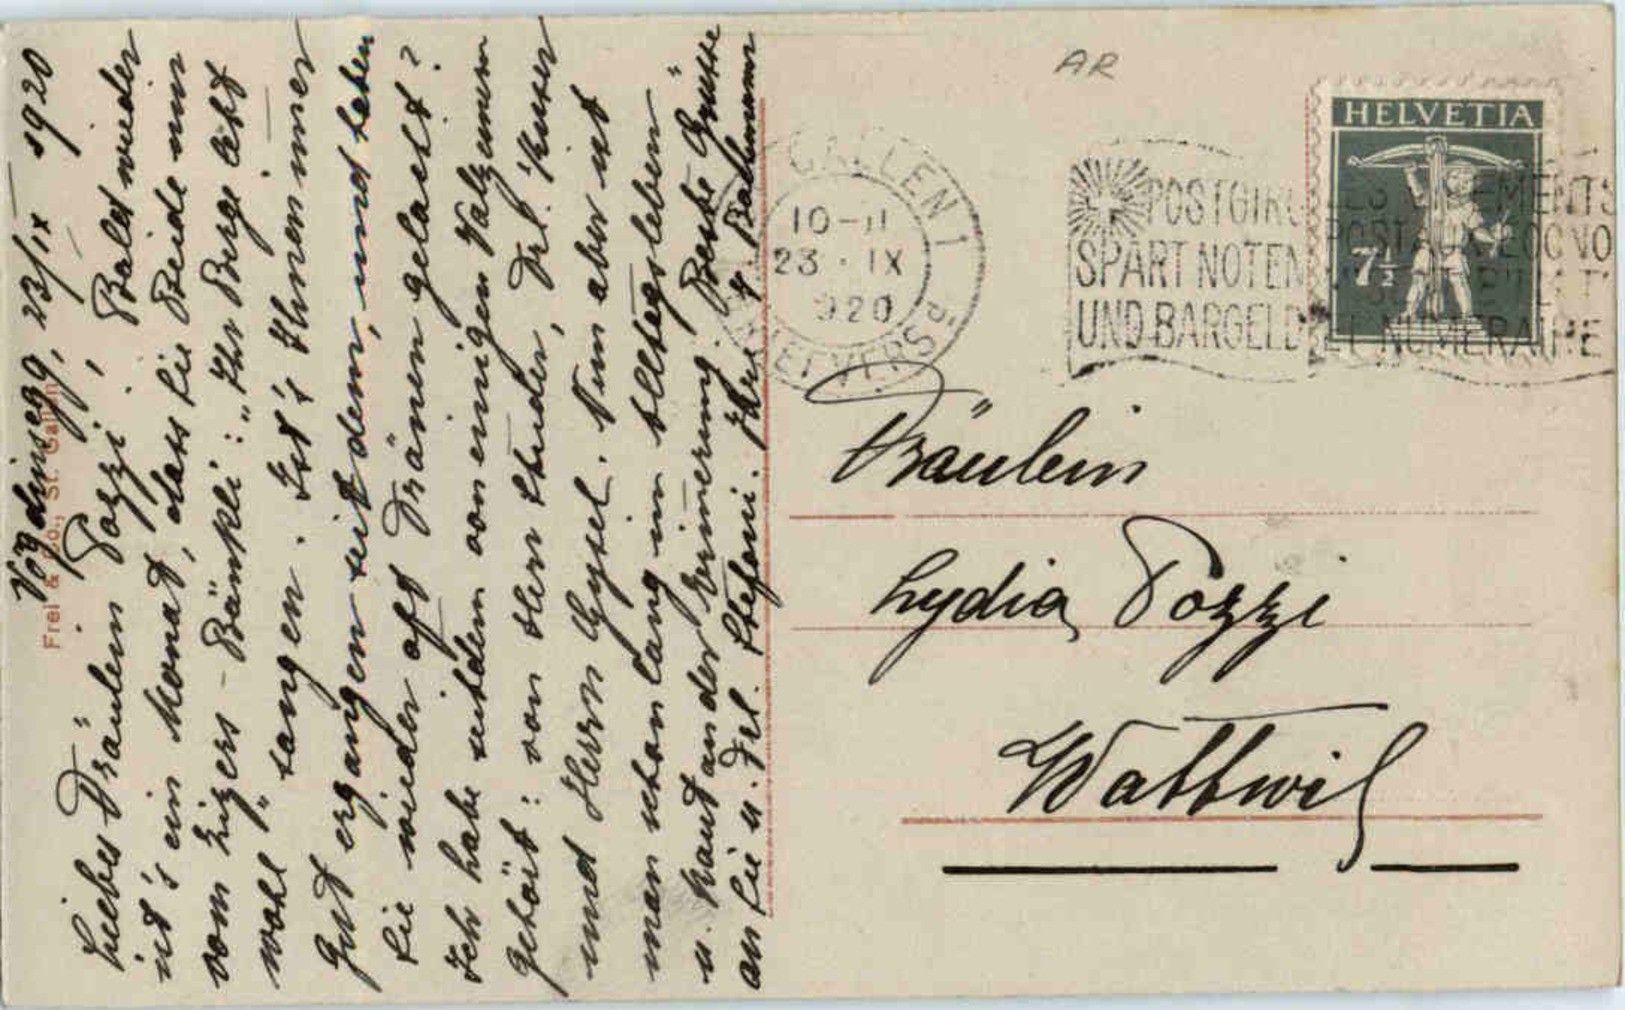 Vögelinsegg, 23/IX 1920
Liebes Fräulein Pozzi! Bald wieder
ist's ein Monat, dass Sie Beide nun
vom Zizers-Bänkli: „Ihr Berge lebt
wohl" sangen. Ist's Ihnen immer
gut ergangen seitdem, und haben
Sie wieder oft Tränen gelacht?
Ich habe seitdem von einigen Valzeinern
gehört: von Herr Studer, Frl. Suter
und Herrn Gysel. Nun aber ist
man schon lang im Alltagsleben
u. kaut an der Erinnerung. Beste Grüsse
an Sie u. Frl. Stefani. Ihre
Frei & Co., St. Gallen
AR
HELVETIA
7½
GALLEN 1
10-11
23 · IX
1920
BRIEFVERS
POSTGIRO
SPART NOTEN
UND BARGELD
NUMERAIRE
Fräulein
Lydia Pozzi
Wattwil